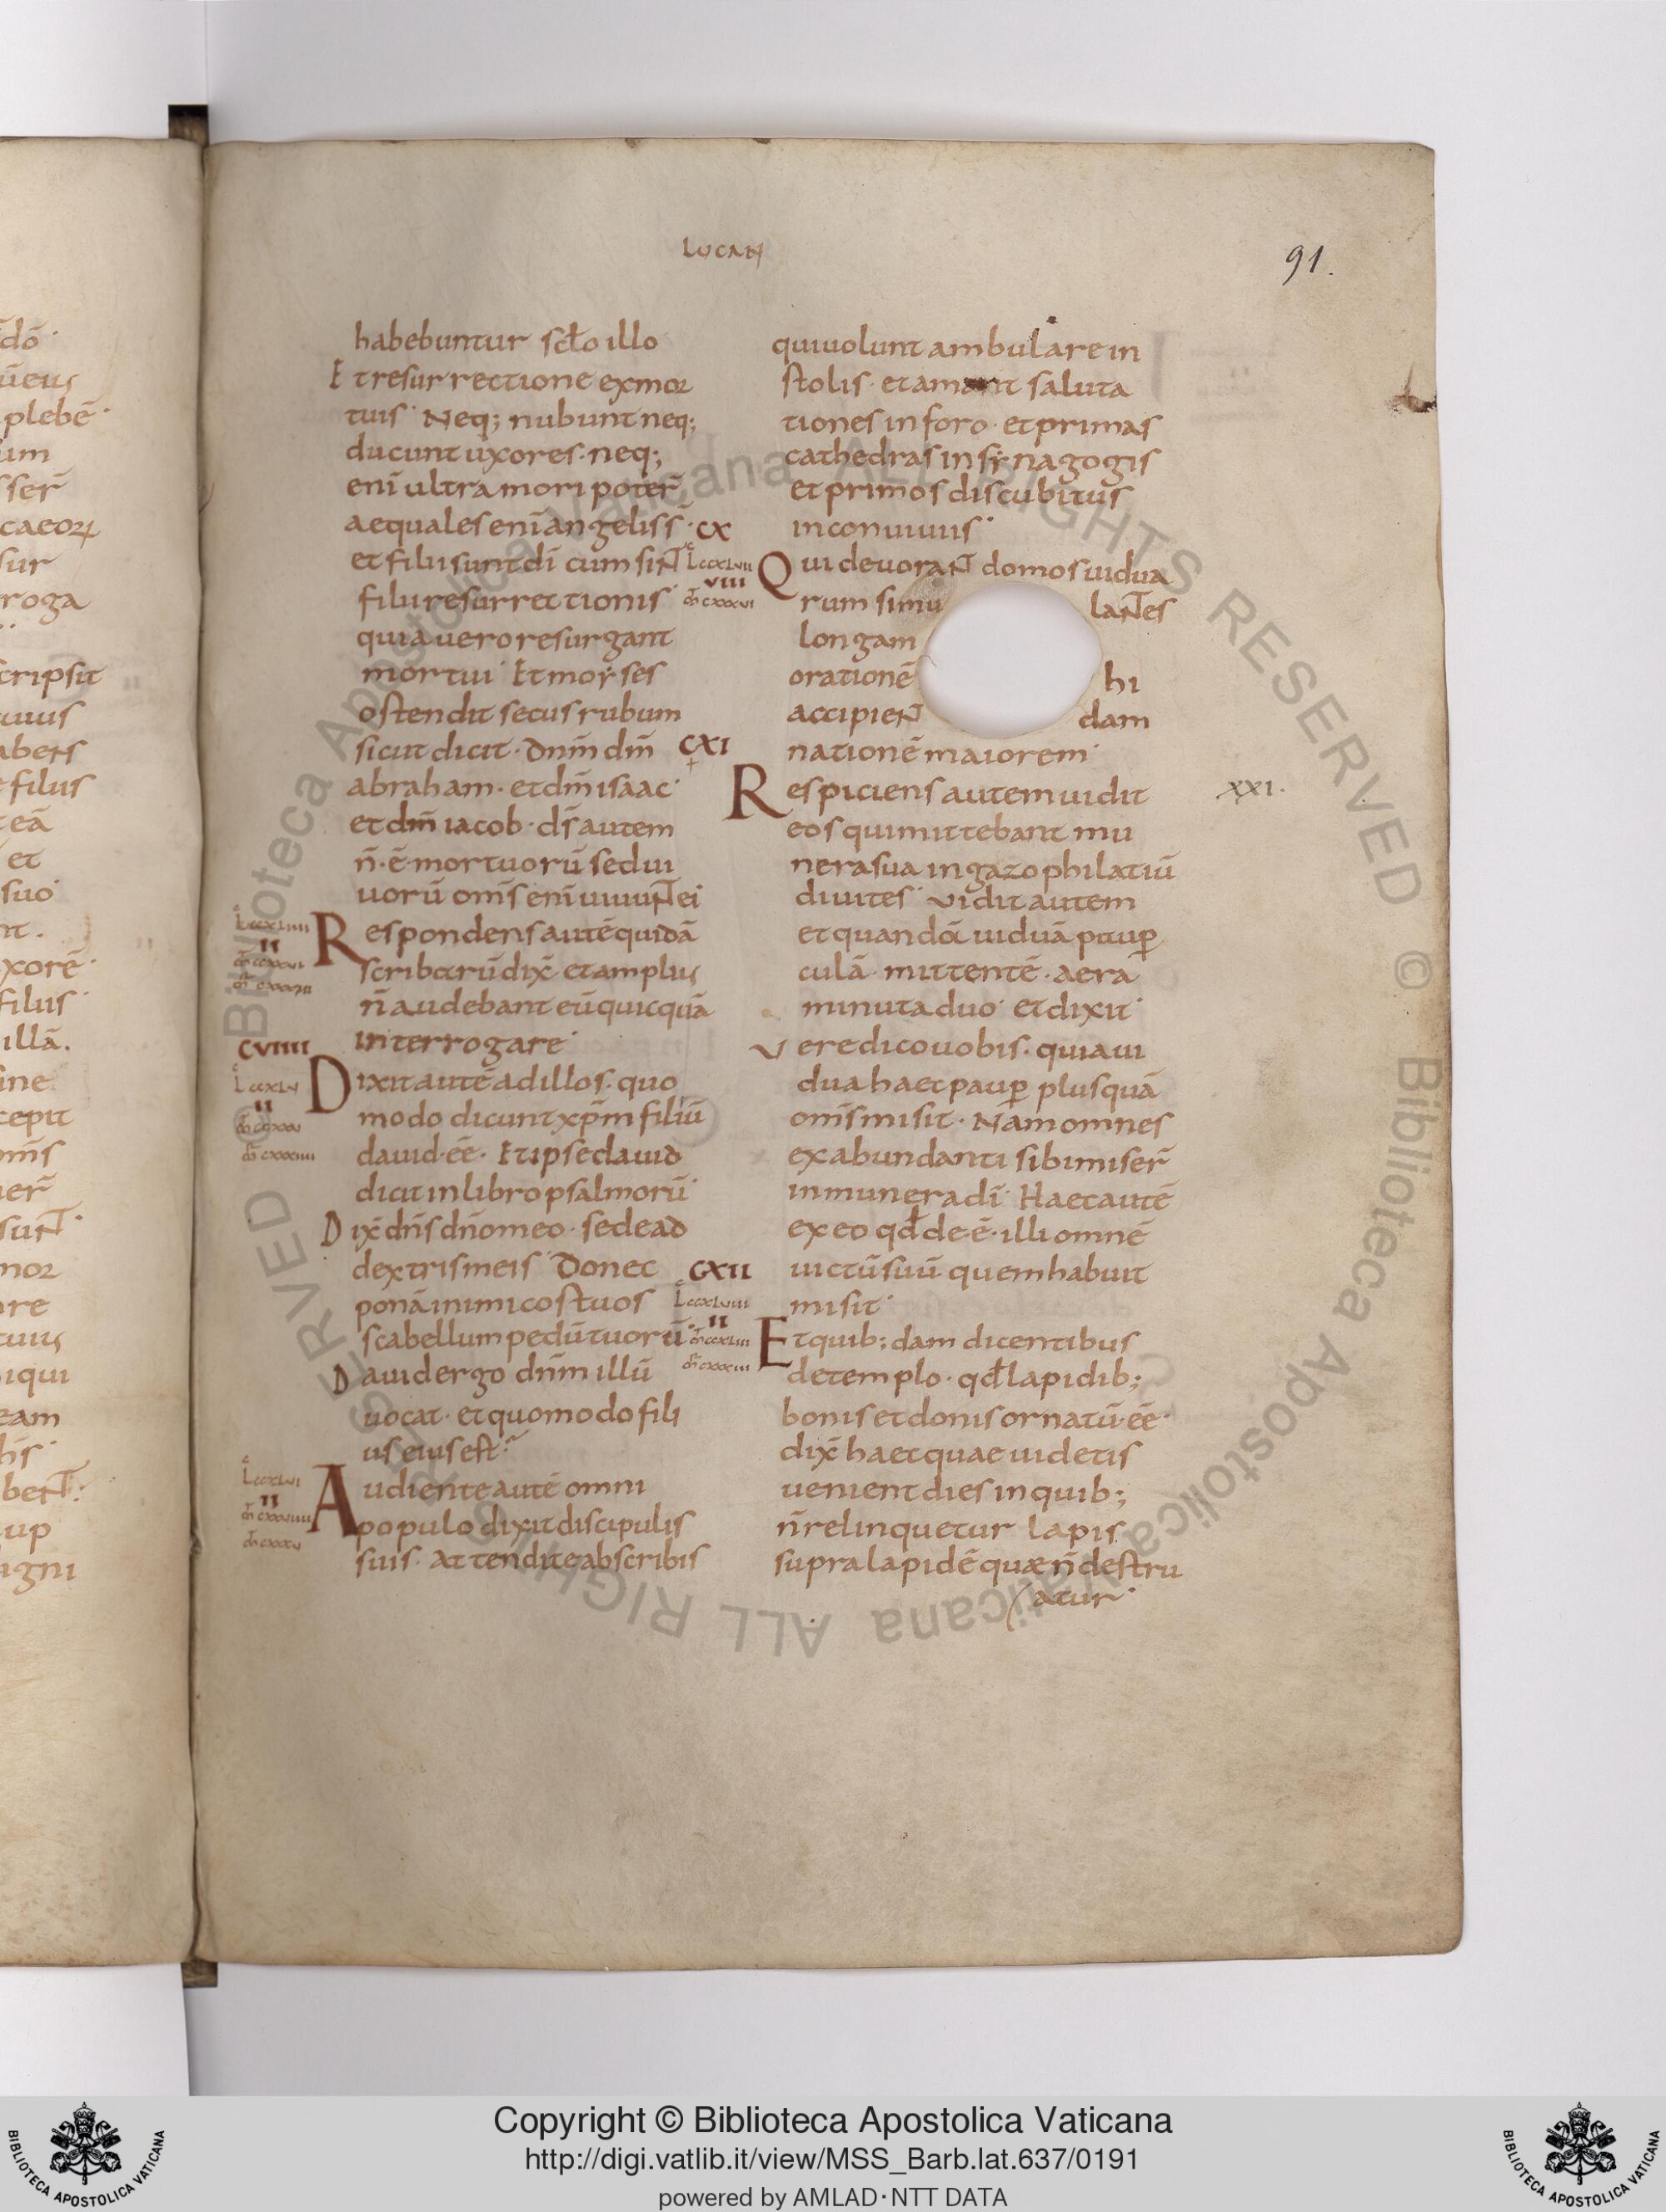 LUCAN
91.
habebuntur scło illo
Et resurrectione ex mor
tuis· Neq; nubunt neq;
ducunt uxores· neq;
enī ultra mori poter̄
aequales enī angelis s̄·
et filii sunt dī cum sint
filii resurrectionis·
quia uero resurgant
mortui· Et moyses
ostendit secus rubum
sicut dicit· dnm̄ dm̄
abraham· et dm̄ isaac·
et dm̄ iacob· ds̄ autem
n̄·ē· mortuorū sed ui
uorū om̄s enī uiuunt ei
Respondens autē quidā
scribarū dix̄ et amplius
n̄ audebant eū quicquā
interrogare·
CVIIII
Dixit autē ad illos· quo
modo dicunt xp̄m filiū
dauid·ēē· Et ipse dauid
dicit in libro psalmorū·
Dix̄ dn̄s dn̄o meo· sede ad
dextris meis· Donec
ponā inimicos tuos
scabellum pedū tuorū·
Dauid ergo dnm̄ illū
uocat· et quomodo fili
us eius est·
Audiente autē omni
populo dixit discipulis
suis· Attendite ab scribis
CX
VIII
CXI
CXII
II
qui uolunt ambulare in
stolis· et amant saluta
tiones in foro· et primas
cathedras in synagogis
et primos discubitus
in conuiuiis·
Qui deuorant domos uidua
rum simu lantes
longam
orationē hi
accipient dam
nationē maiorem·
Respiciens autem uidit
XXI.
eos qui mittebant mu
nera sua in gazophilatiū
diuites· Vidit autem
et quandā uiduā paup
culā· mittentē· aera
minuta duo· et dixit·
Vere dico uobis· quia ui
dua haec paup plus quā
om̄s misit· Nam omnes
ex abundanti sibi miser̄
in munera dī· Haec autē
ex eo qđ de·ē· illi omnē
uictū suū quem habuit
misit·
Et quib;dam dicentibus
de templo· qđ lapidib;
bonis et donis ornatū·ēē·
dix̄ haec quae uidetis
uenient dies in quib;
n̄ relinquetur lapis
supra lapidē quae n̄ destru
atur·
Copyright © Biblioteca Apostolica Vaticana
http://digi.vatlib.it/view/MSS_Barb.lat.637/0191
powered by AMLAD·NTT DATA